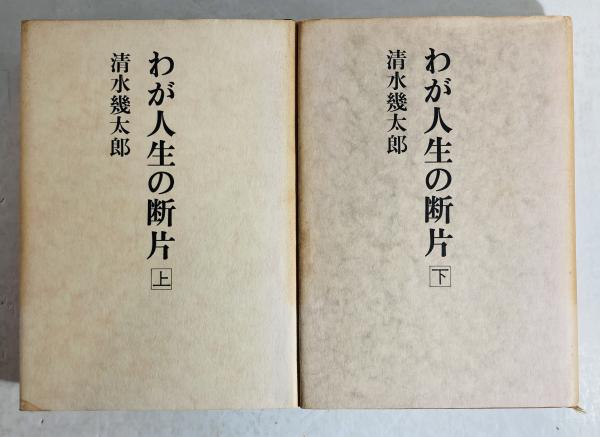 わが人生の断片 上
清水幾太郎
わが人生の断片 下
清水幾太郎